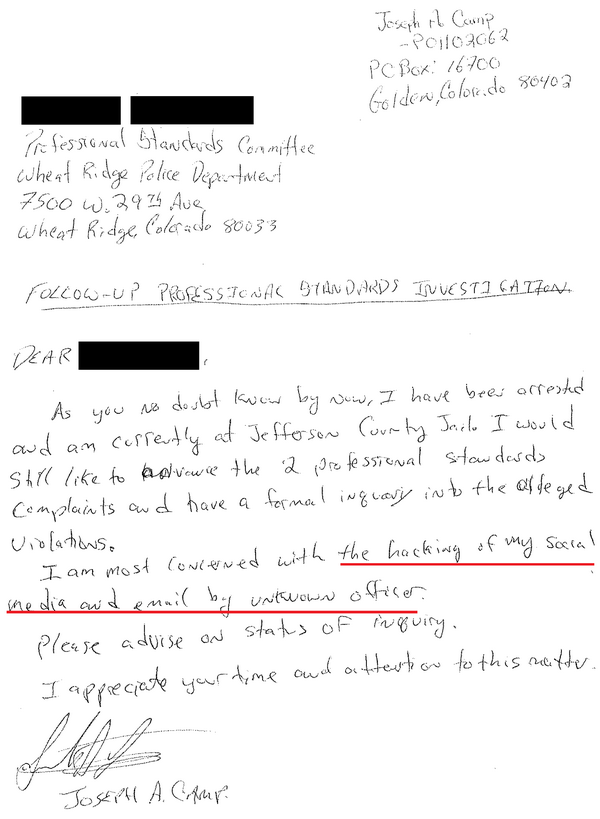 Joseph A Camp
-P01102062
PO Box: 16700
Golden, Colorado 80402
Professional Standards Committee
Wheat Ridge Police Department
7500 W. 29th Ave
Wheat Ridge, Colorado 80033
FOLLOW-UP PROFESSIONAL STANDARDS INVESTIGATION
DEAR ,
As you no doubt know by now, I have been arrested
and am currently at Jefferson County Jail. I would
still like to advance the 2 professional standards
complaints and have a formal inquary into the alleged
violations.
I am most concerned with the hacking of my social
media and email by unknown officer.
Please advise on status of inquiry.
I appreciate your time and attention to this matter.
JOSEPH A. CAMP